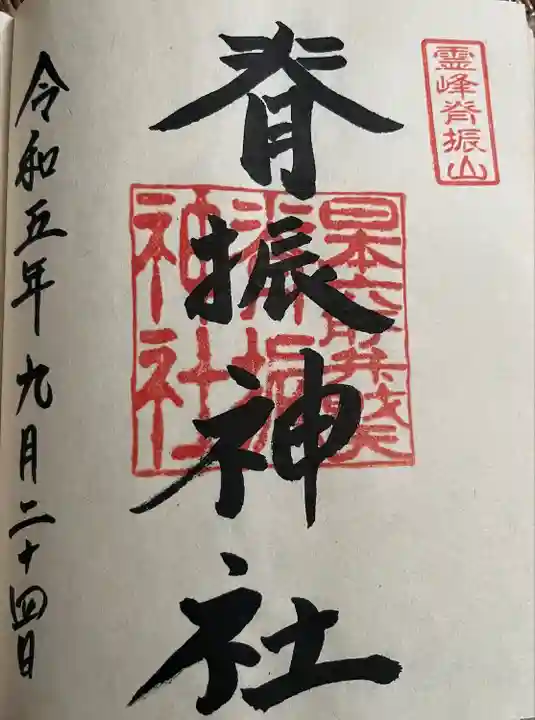 霊峰脊振山
脊振神社
日本六所弁財天
脊振
神社
令和五年九月二十四日